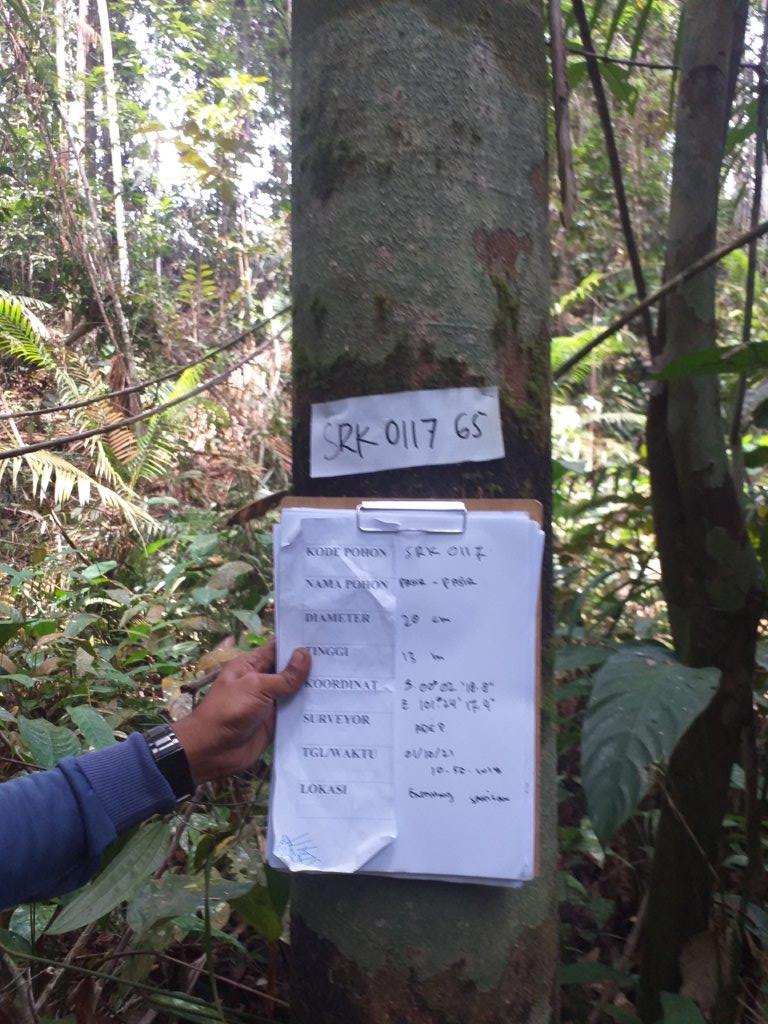 SRK 0117 65
KODE POHON SRK 0117
NAMA POHON PASIR - PASIR
DIAMETER 28 cm
TINGGI 13 m
KOORDINAT S 00°02'18.8"
E 101°24'17.9"
SURVEYOR
TGL/WAKTU 01/10/21
10-50-
LOKASI